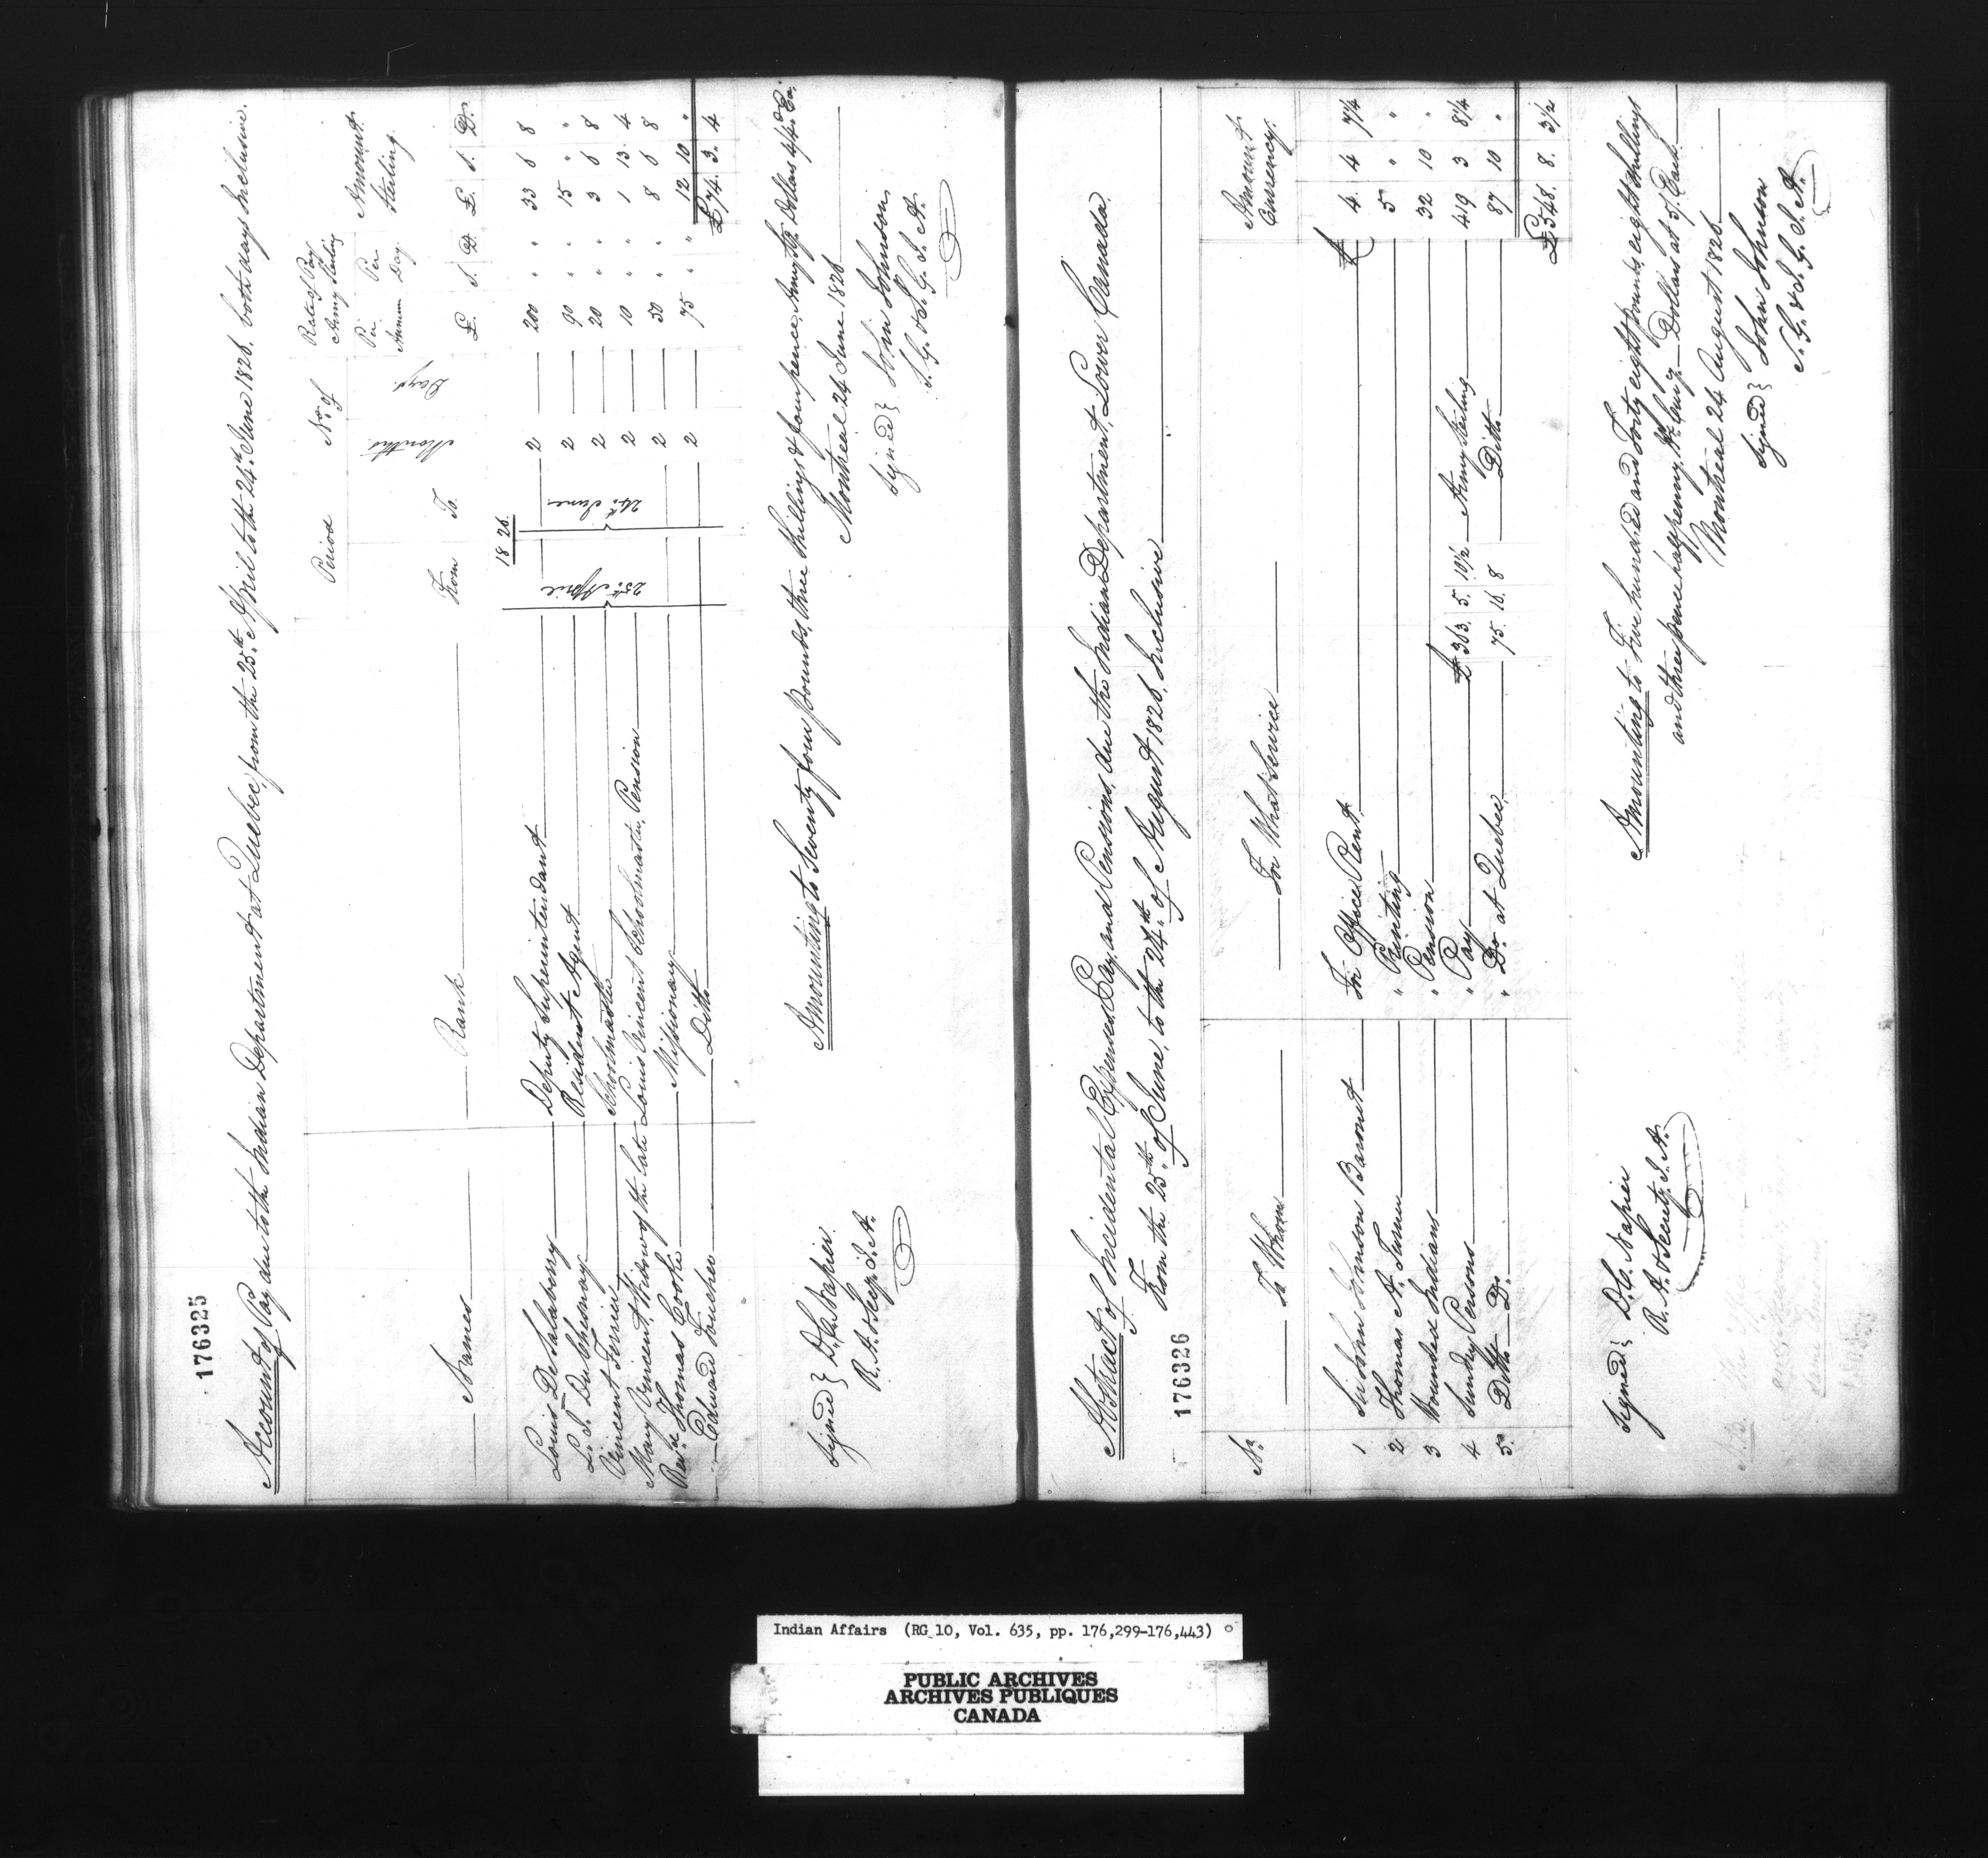 176325
Account of Pay due to the Indian Department at Quebec, from the 25th April to the 24th June 1826, both days Inclusive.
Names Rank Period No. of Rate of Pay Army Sterling Amount Sterling
From To Months Days Per Annum Per Day
£ S. D. £ S. D.
1826
Louis De Salaberry Deputy Superintendant 25th April 24th June 2 200 " " 33 6 8
L. J. Duchesnay Resident Agent 2 90 " " 15 " "
Vincent Ferrier Schoolmaster 2 20 " " 3 6 8
Mary Vincent, Widow of the late Louis Vincent Schoolmaster, Pension 2 10 " " 1 13 4
Revd. Thomas Cooke Missionary 2 50 " " 8 6 8
Edward Faucher Ditto 2 75 " " 12 10 "
£74. 3. 4
Amounting to Seventy four pounds, three Shillings & four pence, Army Stg. Dollars 4/4 Ea.
Montreal 24 June 1826
Signed } D. C. Napier
R. A. & Secy. I. A.
Signed } John Johnson
S. G. & I. G. I. A.
176326
Abstract of Incidental Expenses, Pay, and Pensions, due the Indian Department, Lower Canada,
From the 25th of June, to the 24th of August 1826, Inclusive
No. To Whom For What Service Amount Currency
1 Sir John Johnson Baronet For Office Rent £ 4. 4 7 1/4
2 Thomas A. Turner " Printing 5 " "
3 Wounded Indians " Pension 32 10 "
4 Sundry Persons " Pay £ 363. 5. 10 1/2 Army Sterling 419 3 8 1/4
5. Ditto Do. " Do. at Quebec 75. 16. 8 Ditto 87 10 "
£548. 8. 3 1/2
Amounting to Five hundred and Forty eight pounds, eight Shillings
and three pence halfpenny, Hx. Curcy. Dollars at 5/ Each
Montreal 24 August 1826
Signed } D. C. Napier
R. A. & Secrety. I. A.
Signed } John Johnson
S. G. & I. G. I. A.
Indian Affairs (RG 10, Vol. 635, pp. 176,299-176,443)
PUBLIC ARCHIVES
ARCHIVES PUBLIQUES
CANADA